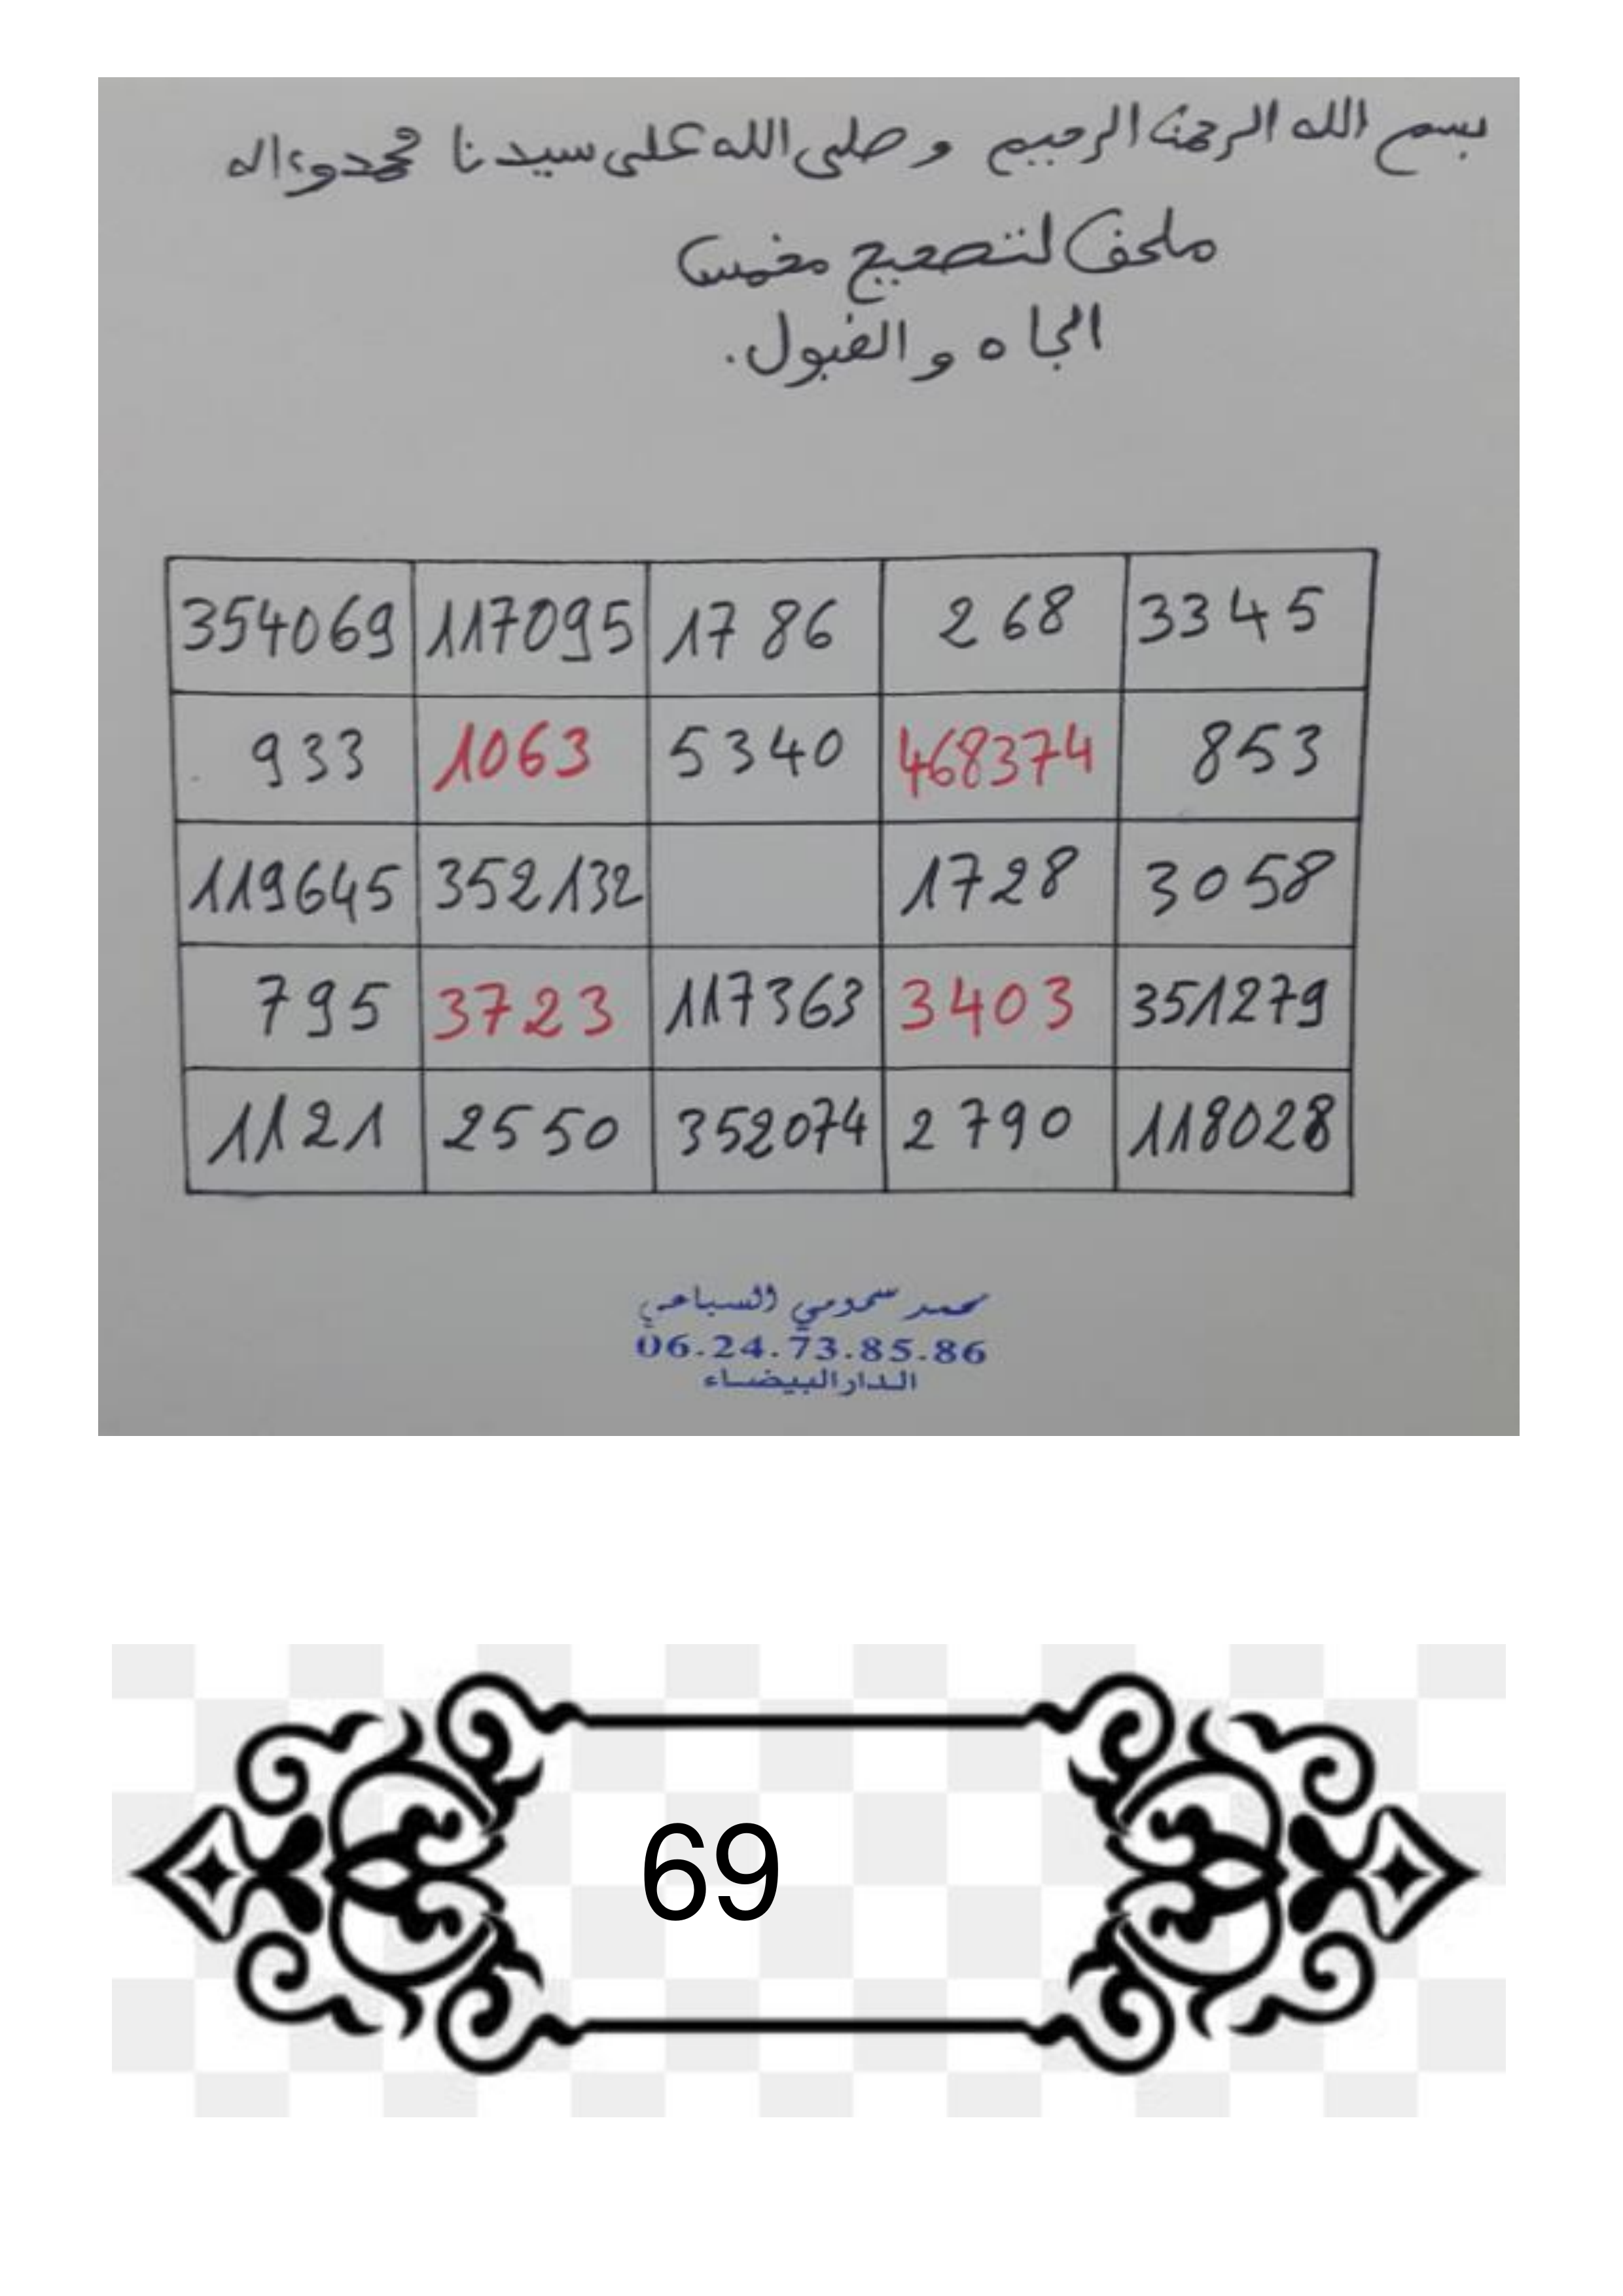 بسم الله الرحمن الرحيم و صلى الله على سيدنا محمد وءاله
ملحق لتصحيح مخمس
الجاه و القبول.
354069 117095 1786 268 3345
933 1063 5340 468374 853
119645 352132 1728 3058
795 3723 117363 3403 351279
1121 2550 352074 2790 118028
محمد سمومي السباعي
06.24.73.85.86
الدار البيضاء
69